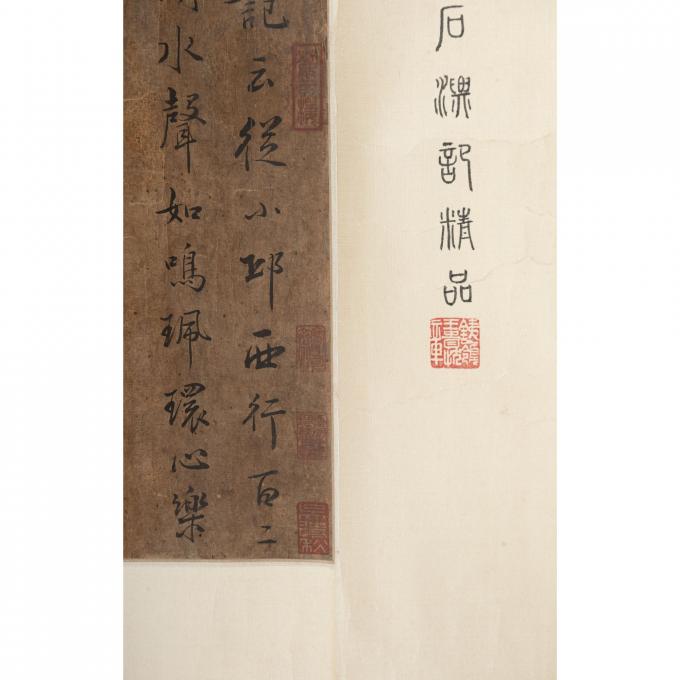 石潭記精品
記云從小邱西行百二
水聲如鳴珮環心樂